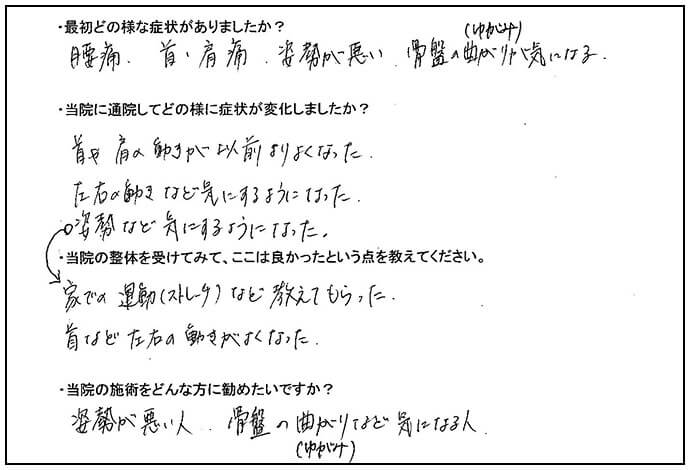 ・最初どの様な症状がありましたか？
(ゆがみ)
腰痛. 首・肩痛. 姿勢が悪い. 骨盤の曲がりが気になる.
・当院に通院してどの様に症状が変化しましたか？
首や肩の動きが以前よりよくなった.
左右の動きなど気にするようになった.
姿勢など気にするようになった。
・当院の整体を受けてみて、ここは良かったという点を教えてください。
家での運動(ストレッチ)など教えてもらった.
首など左右の動きがよくなった.
・当院の施術をどんな方に勧めたいですか？
姿勢が悪い人. 骨盤の曲がりなど気になる人.
(ゆがみ)